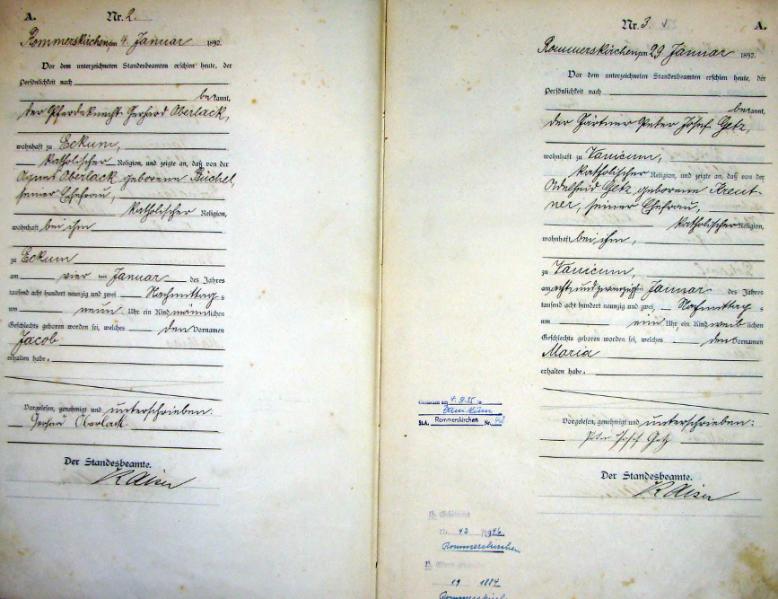 A.
Nr. 2.
Rommerskirchen am 4. Januar 1892.
Vor dem unterzeichneten Standesbeamten erschien heute, der
Persönlichkeit nach
bekannt,
der Pferdeknecht Gerhard Oberlack,
wohnhaft zu Eckum,
katholischer Religion, und zeigte an, daß von der
Agnes Oberlack geborene Büchel,
seiner Ehefrau,
katholischer Religion,
wohnhaft bei ihm
zu Eckum
am vier ten Januar des Jahres
tausend acht hundert neunzig und zwei Nachmittag-
um neun Uhr ein Kind männlichen
Geschlechts geboren worden sei, welches den Vornamen
Jacob
erhalten habe.
Vorgelesen, genehmigt und unterschrieben.
Gerhard Oberlack
Der Standesbeamte.
Kaiser
Nr. 3.
A.
Rommerskirchen am 29 Januar 1892.
Vor dem unterzeichneten Standesbeamten erschien heute, der
Persönlichkeit nach
bekannt,
der Gärtner Peter Josef Getz,
wohnhaft zu Vanicum,
katholischer Religion, und zeigte an, daß von der
Adelheid Getz, geborene Kreut-
ner, seiner Ehefrau,
katholischer Religion,
wohnhaft bei ihm,
zu Vanicum,
am acht und zwanzigsten Januar des Jahres
tausend acht hundert neunzig und zwei, Nachmittag-
um ein Uhr ein Kind weiblichen
Geschlechts geboren worden sei, welches den Vornamen
Maria
erhalten habe.
Vorgelesen, genehmigt und unterschrieben:
Peter Josef Getz
Der Standesbeamte.
Kaiser
St.A. Rommerskirchen Nr.
Rommerskirchen